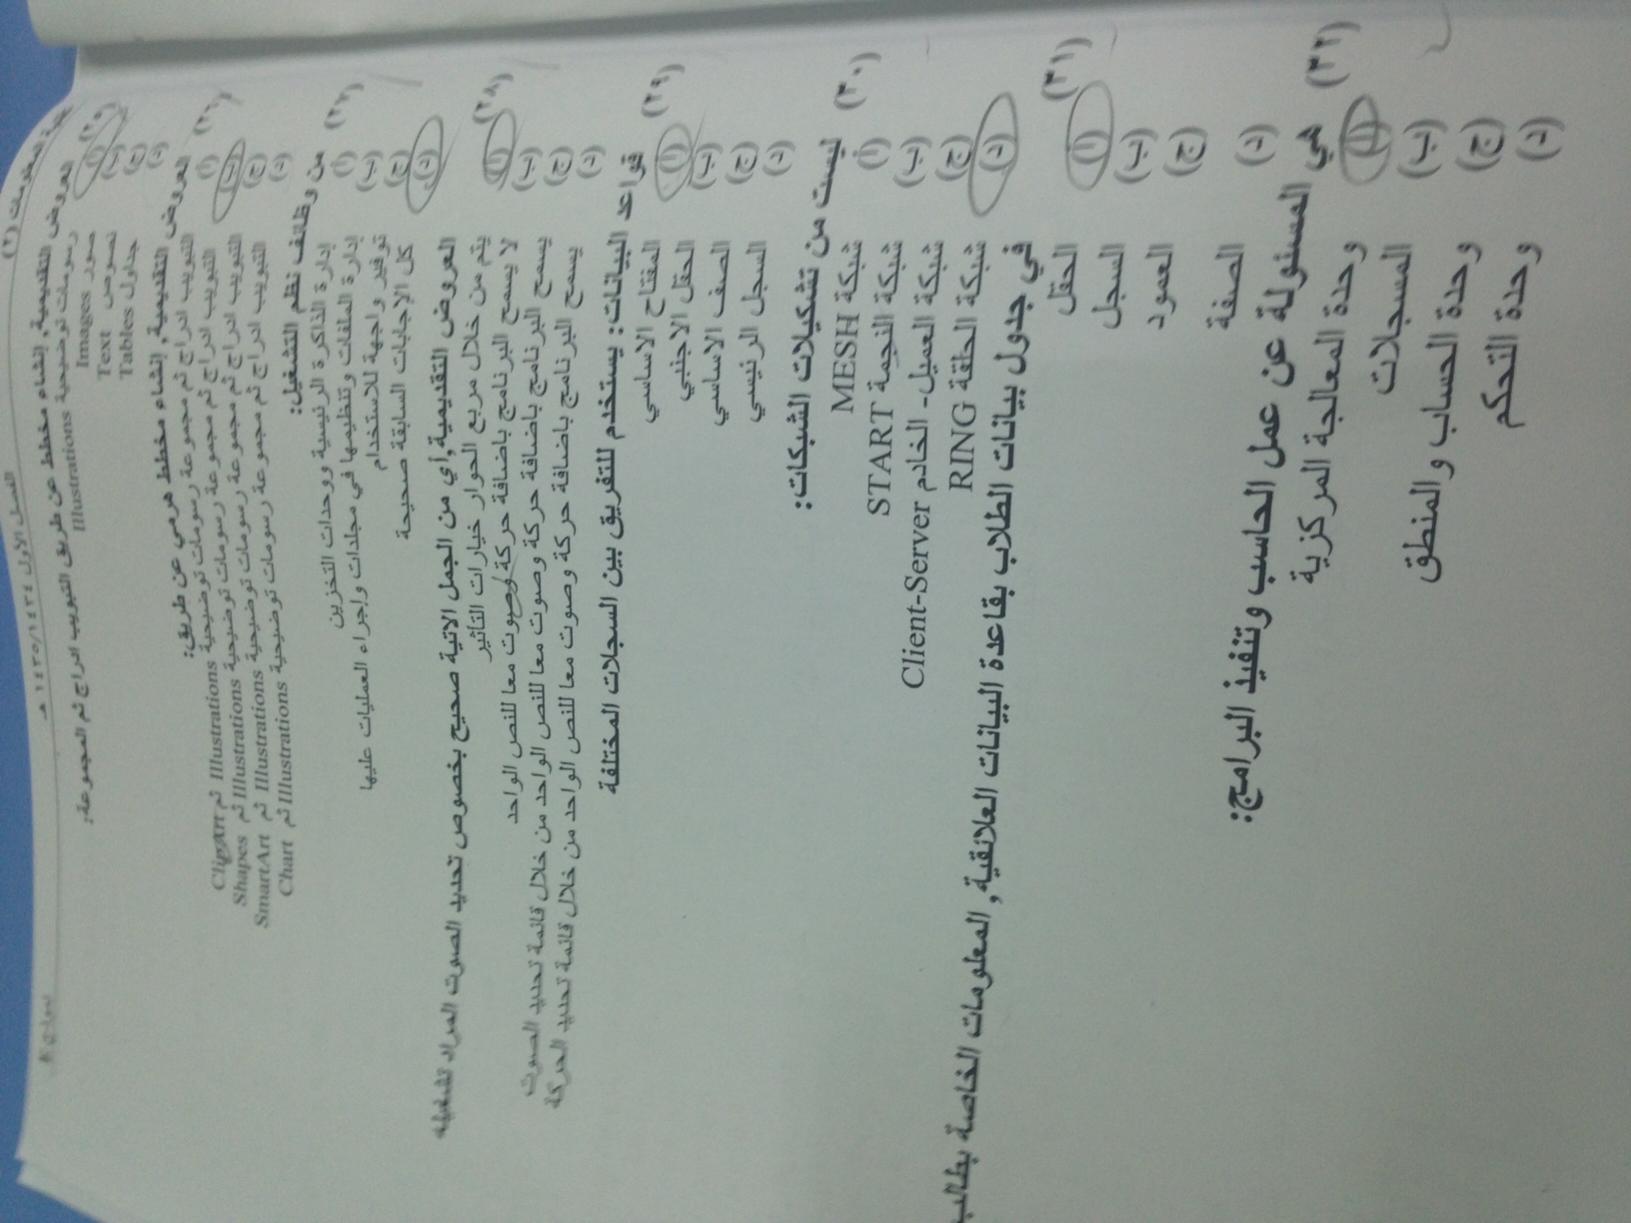 تقنية المعلومات (٢) الفصل الأول ١٤٣٤/١٤٣٥ هـ
(٢٥) العروض التقديمية, إنشاء مخطط عن طريق التبويب ادراج ثم المجموعة:
(أ) رسومات توضيحية Illustrations
(ب) صور Images
(ج) نصوص Text
(د) جداول Tables
(٢٦) العروض التقديمية, إنشاء مخطط هرمي عن طريق:
(أ) التبويب ادراج ثم مجموعة رسومات توضيحية Illustrations ثم ClipArt
(ب) التبويب ادراج ثم مجموعة رسومات توضيحية Illustrations ثم Shapes
(ج) التبويب ادراج ثم مجموعة رسومات توضيحية Illustrations ثم SmartArt
(د) التبويب ادراج ثم مجموعة رسومات توضيحية Illustrations ثم Chart
(٢٧) من وظائف نظم التشغيل:
(أ) إدارة الذاكرة الرئيسية ووحدات التخزين
(ب) إدارة الملفات وتنظيمها في مجلدات وإجراء العمليات عليها
(ج) توفير واجهة للاستخدام
(د) كل الإجابات السابقة صحيحة
(٢٨) العروض التقديمية,أي من الجمل الاتية صحيح بخصوص تحديد الصوت المراد تشغيله
(أ) يتم من خلال مربع الحوار خيارات التأثير
(ب) لا يسمح البرنامج باضافة حركة وصوت معا للنص الواحد
(ج) يسمح البرنامج باضافة حركة وصوت معا للنص الواحد من خلال قائمة تحديد الصوت
(د) يسمح البرنامج باضافة حركة وصوت معا للنص الواحد من خلال قائمة تحديد الحركة
(٢٩) قواعد البيانات: يستخدم للتفريق بين السجلات المختلفة
(أ) المفتاح الاساسي
(ب) الحقل الاجنبي
(ج) الصف الاساسي
(د) السجل الرئيسي
(٣٠) ليست من تشكيلات الشبكات:
(أ) شبكة MESH
(ب) شبكة النجمة START
(ج) شبكة العميل- الخادم Client-Server
(د) شبكة الحلقة RING
(٣١) في جدول بيانات الطلاب بقاعدة البيانات العلائقية, المعلومات الخاصة بطالب
(أ) الحقل
(ب) السجل
(ج) العمود
(د) الصفة
(٣٢) هي المسئولة عن عمل الحاسب وتنفيذ البرامج:
(أ) وحدة المعالجة المركزية
(ب) المسجلات
(ج) وحدة الحساب والمنطق
(د) وحدة التحكم